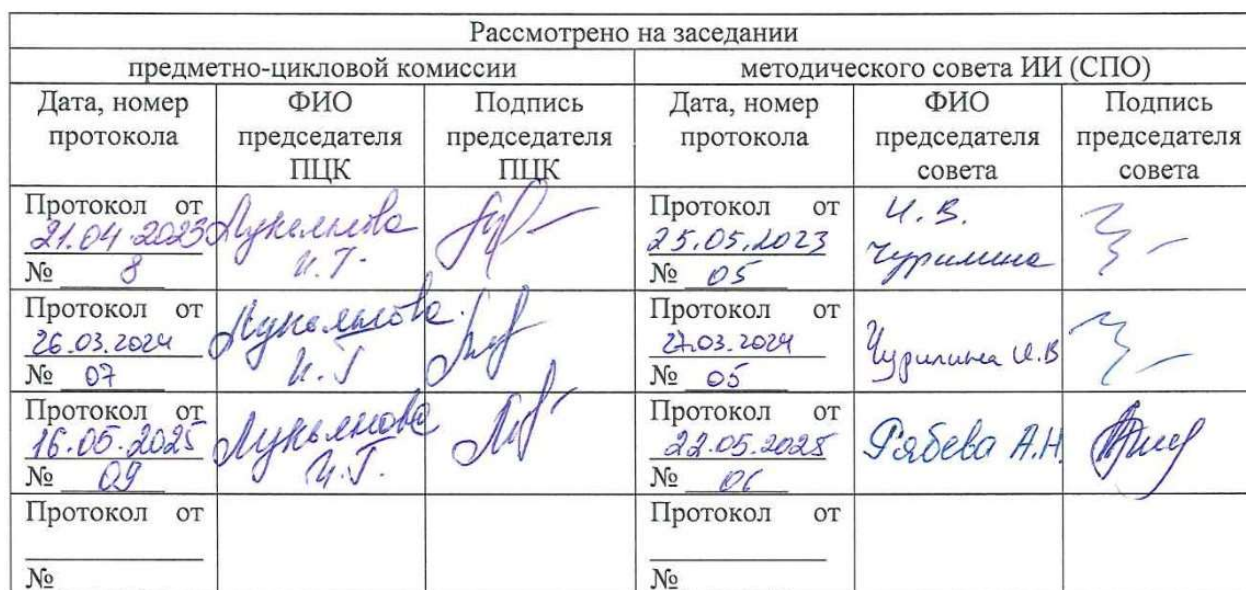 Рассмотрено на заседании
предметно-цикловой комиссии
методического совета ИИ (СПО)
Дата, номер
протокола
ФИО
председателя
ПЦК
Подпись
председателя
ПЦК
Дата, номер
протокола
ФИО
председателя
совета
Подпись
председателя
совета
Протокол от
21.04.2023
№ 8
Лукьянова
И.Г.
Протокол от
25.05.2023
№ 05
И.В.
Чурилина
Протокол от
26.03.2024
№ 07
Лукьянова
И.Г
Протокол от
27.03.2024
№ 05
Чурилина И.В
Протокол от
16.05.2025
№ 09
Лукьянова
И.Г.
Протокол от
22.05.2025
№ 06
Рябева А.Н.
Протокол от
№
Протокол от
№